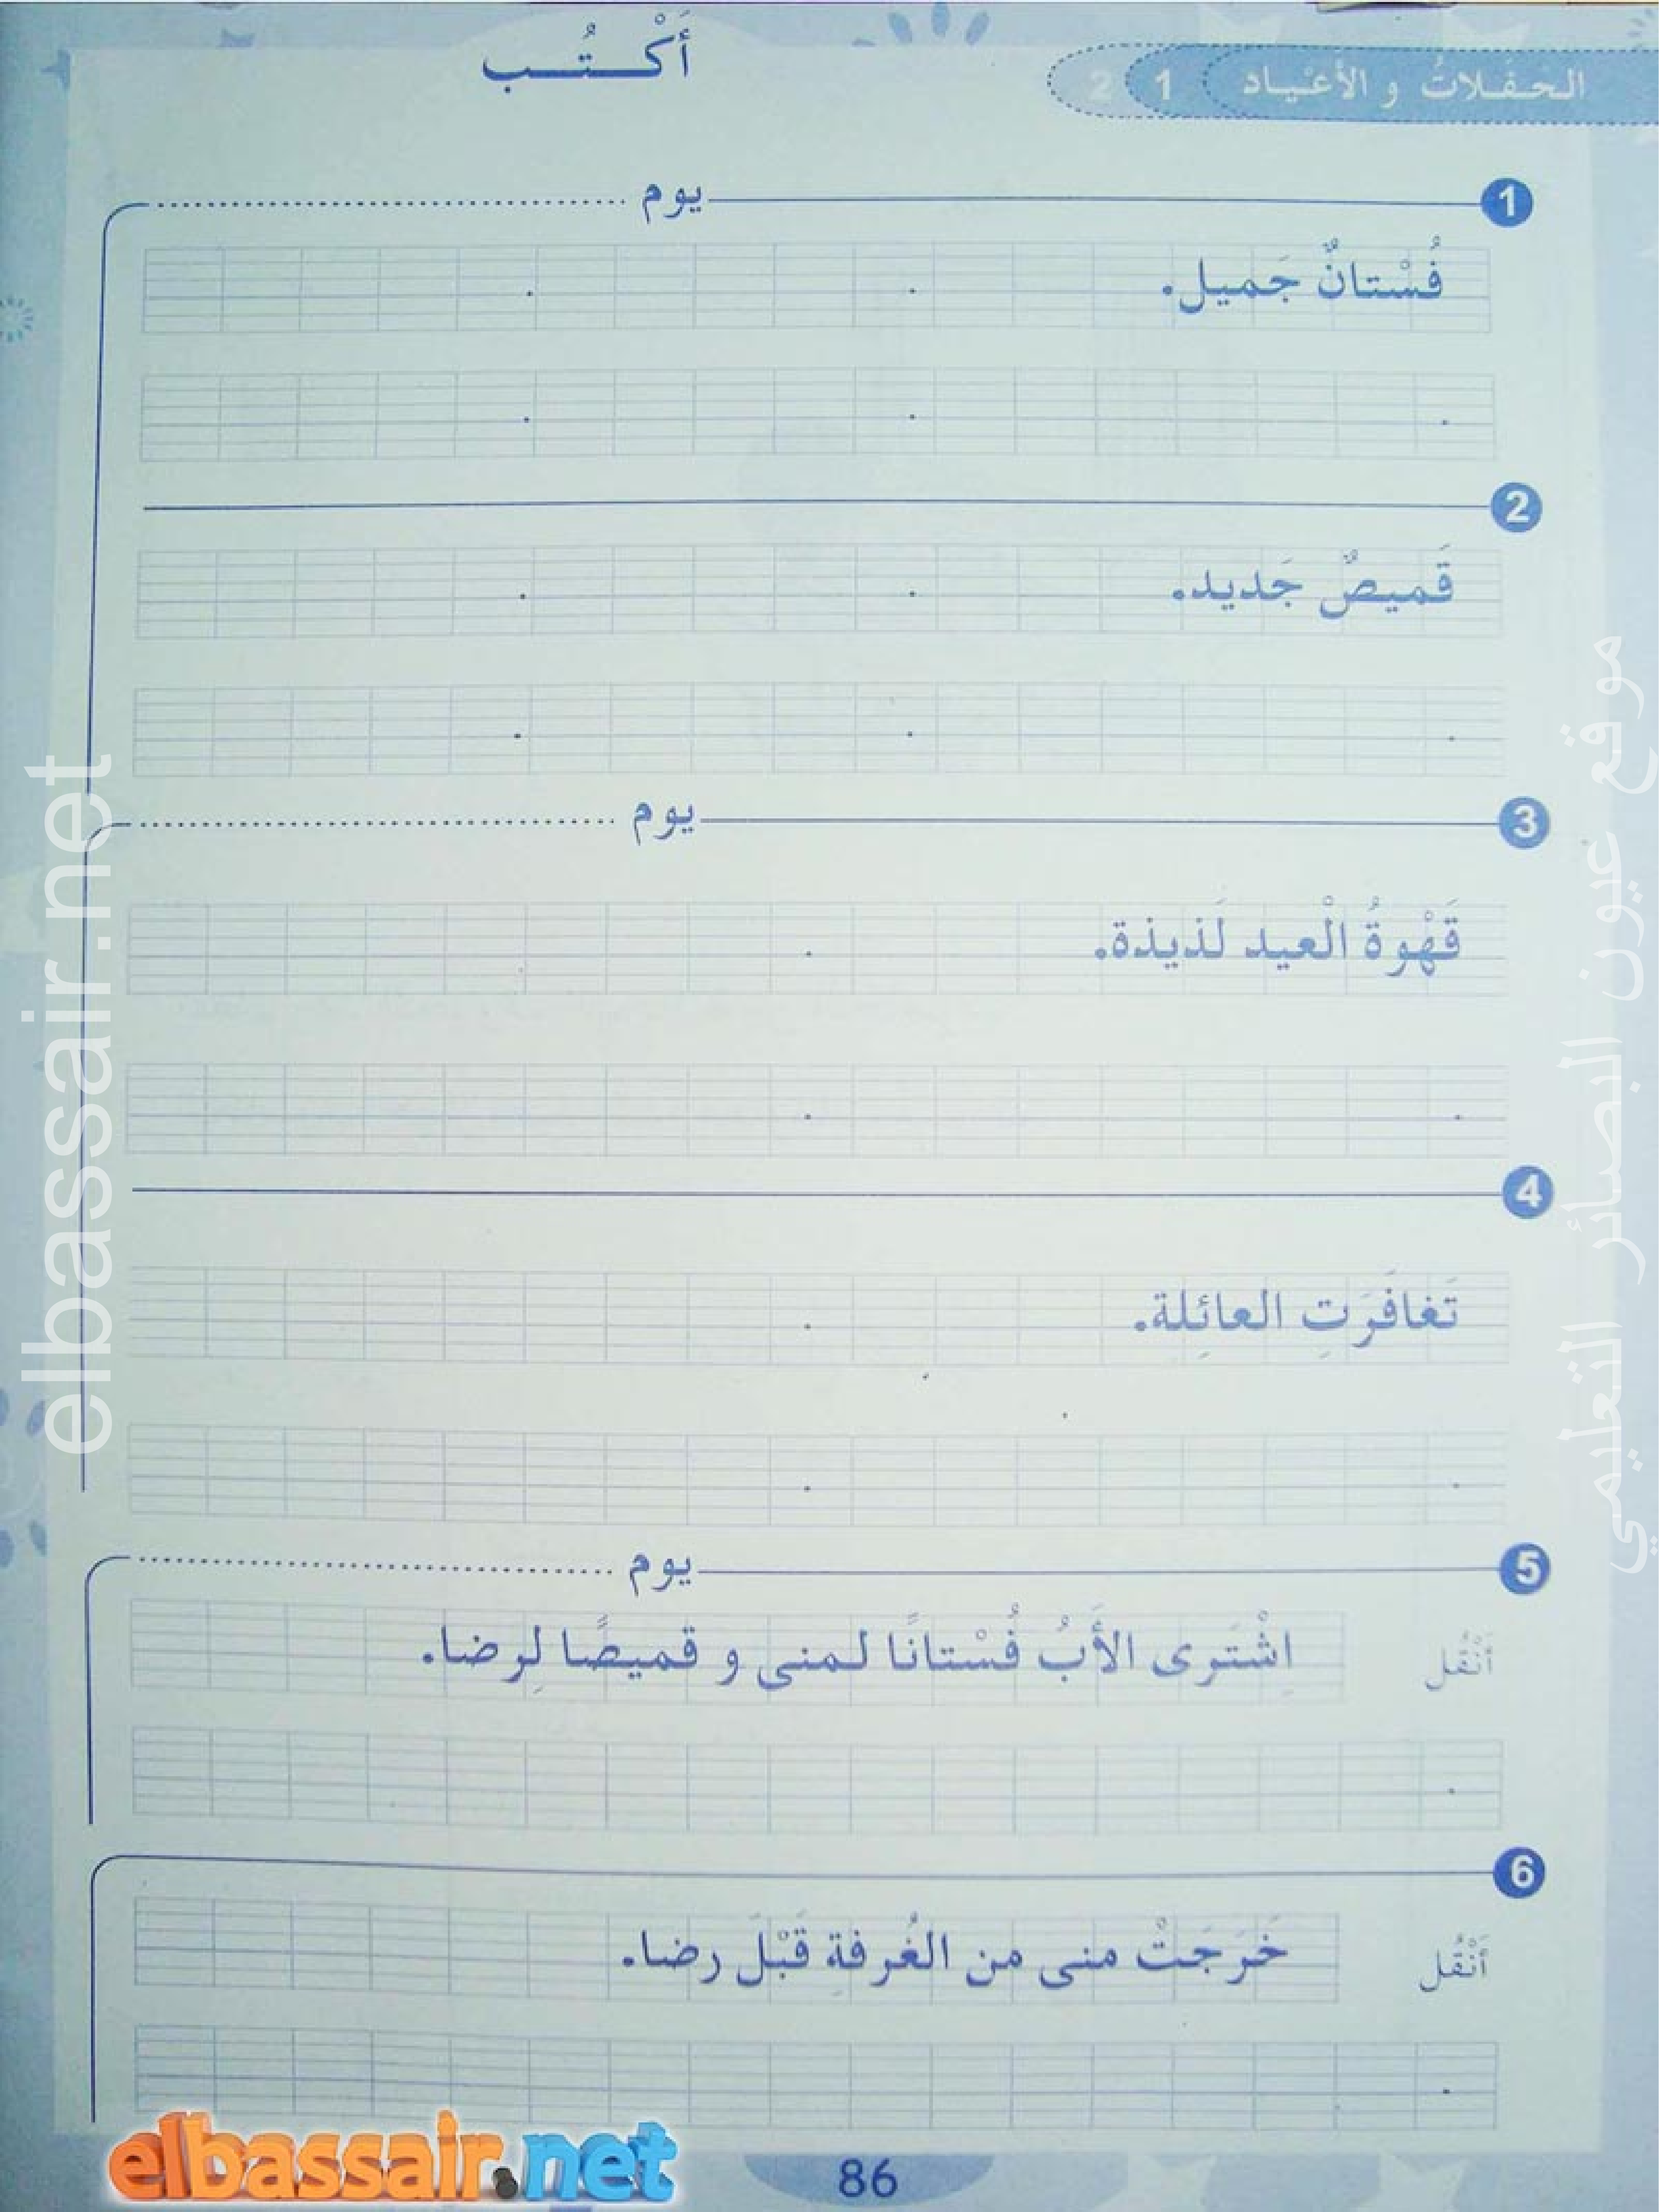 أَكْتُب
الحفَلاتُ و الأَعْياد 1 2
1 يوم
فُسْتانٌ جَميل.
2
قَميصٌ جَديد.
3 يوم
قَهْوةُ الْعيد لَذيذة.
4
تَغافَرَتِ العائِلة.
5 يوم
أَنْقُل اِشْتَرى الأَبُ فُسْتانًا لـمنى و قميصًا لِرضا.
6
أَنْقُل خَرَجَتْ منى من الغُرفةِ قَبْلَ رضا.
86
elbassair.net
elbassair.net
موقع عيون البصائر التعليمي